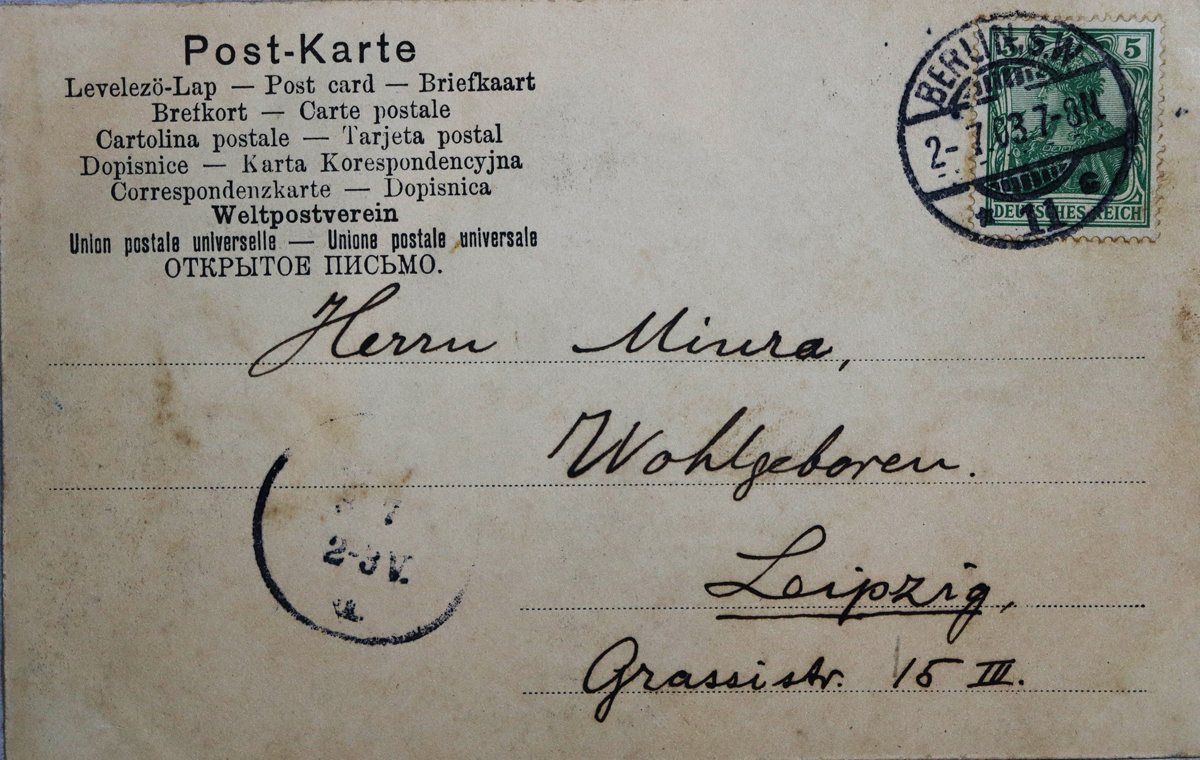 Post-Karte
Levelezö-Lap — Post card — Briefkaart
Brefkort — Carte postale
Cartolina postale — Tarjeta postal
Dopisnice — Karta Korespondencyjna
Correspondenzkarte — Dopisnica
Weltpostverein
Union postale universelle — Unione postale universale
ОТКРЫТОЕ ПИСЬМО.
BERLIN S.W.
2-7 03.7-8N
* 11 c
5 5
DEUTSCHES REICH
Herrn Miura,
Wohlgeboren.
7
2-3V.
a
Leipzig,
Grassistr. 15 III.